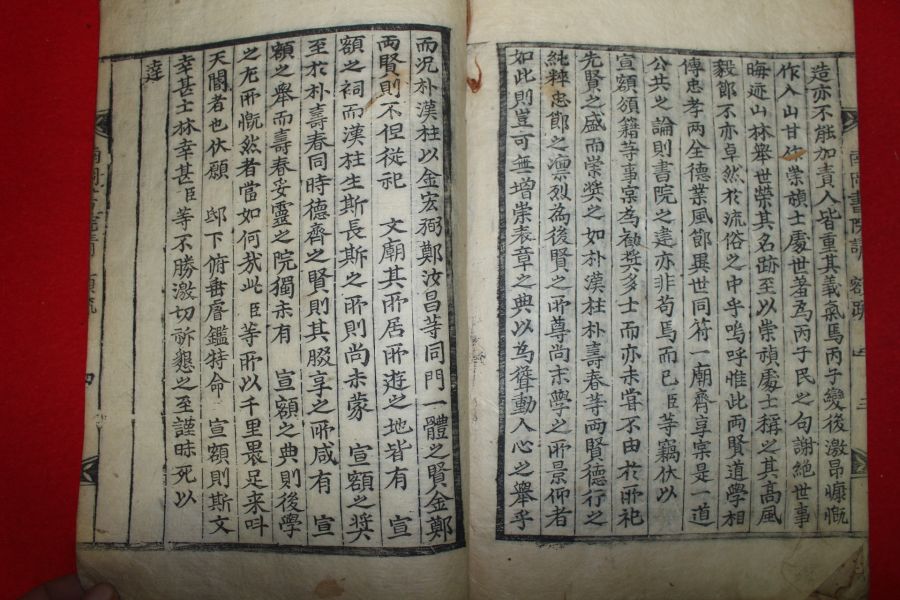 造亦不能加責人皆重其義氣焉丙子變後激昂慷慨
作入山甘作崇禎士處世羞爲丙子民之句謝絶世事
晦迹山林舉世榮其名跡至以崇禎處士稱之其高風
毅節不亦卓然於流俗之中乎嗚呼惟此兩賢道學相
傳忠孝兩全德業風節異世同符一廟齊享寔是一道
公共之論則書院之建亦非苟焉而已臣等竊伏以
宣額頒籍等事寔爲勸奬多士而亦未嘗不由於所祀
先賢之盛而崇奬之如朴漢柱朴壽春等兩賢德行之
純粹忠節之凛烈爲後賢之所尊尚末學之所景仰者
如此則豈可無增崇表章之典以爲聳動人心之舉乎
而况朴漢柱以金宏弼鄭汝昌等同門一體之賢金鄭
兩賢則不但從祀 文廟其所居所遊之地皆有 宣
額之祠而漢柱生斯長斯之所則尚未蒙 宣額之奬
至於朴壽春同時德齊之賢則其腏享之所咸有 宣
額之舉而壽春妥靈之院獨未有 宣額之典則後學
之尤所慨然者當如何哉此臣等所以千里裹足來叫
天閽者也伏願 邸下俯垂睿鑑特命 宣額則斯文
幸甚士林幸甚臣等不勝激切祈懇之至謹昧死以
達
南岡書院請 額疏 三
南岡書院請 額疏 四